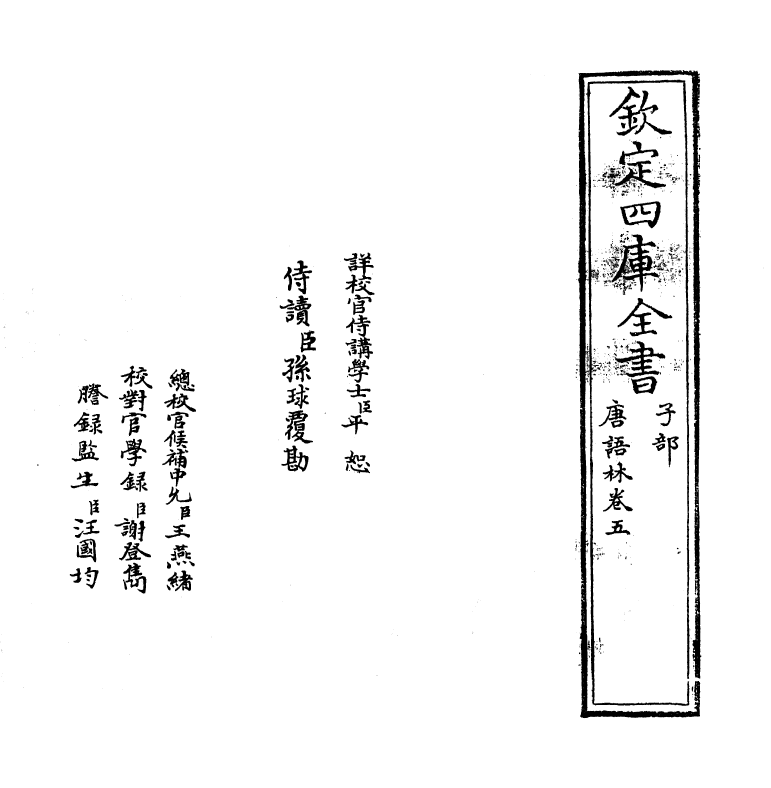 欽定四庫全書
子部
唐語林卷五
詳校官侍講學士臣平恕
侍讀臣孫球覆勘
總校官候補中允臣王燕緒
校對官學錄臣謝登雋
謄錄監生臣汪國均